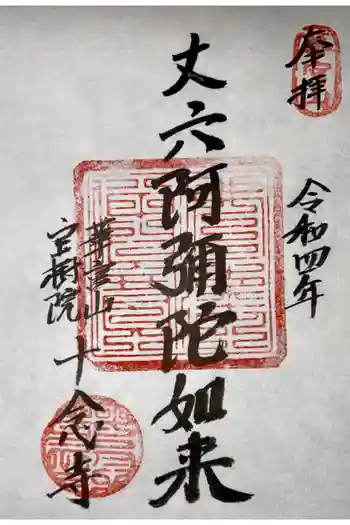 奉拝
令和四年
丈六阿弥陀如来
華宮山
宝樹院
十念寺